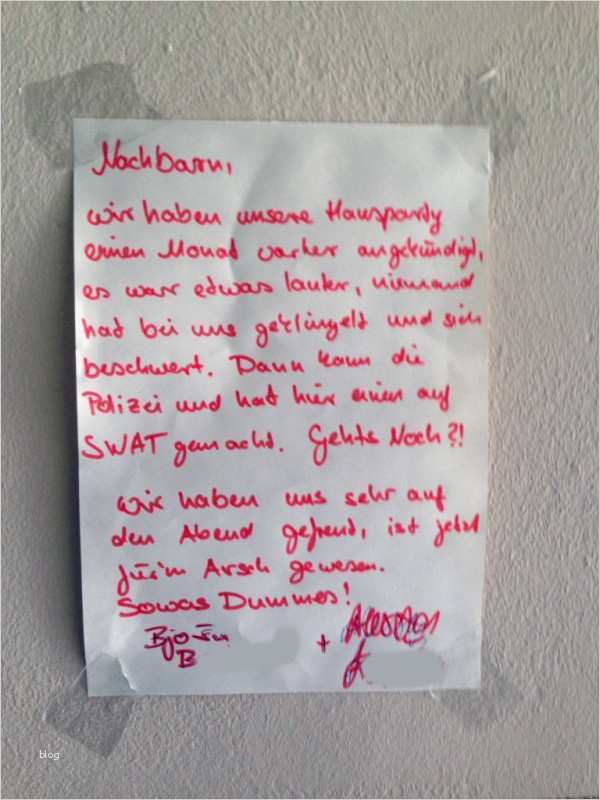 Nachbarn,
wir haben unsere Hausparty
einen Monat vorher angekündigt,
es war etwas lauter, niemand
hat bei uns geklingelt und sich
beschwert. Dann kam die
Polizei und hat hier einen auf
SWAT gemacht. Gehts Noch?!
wir haben uns sehr auf
den Abend gefreut, ist jetzt
für'n Arsch gewesen.
Sowas Dummes!
Björn +
B
blog